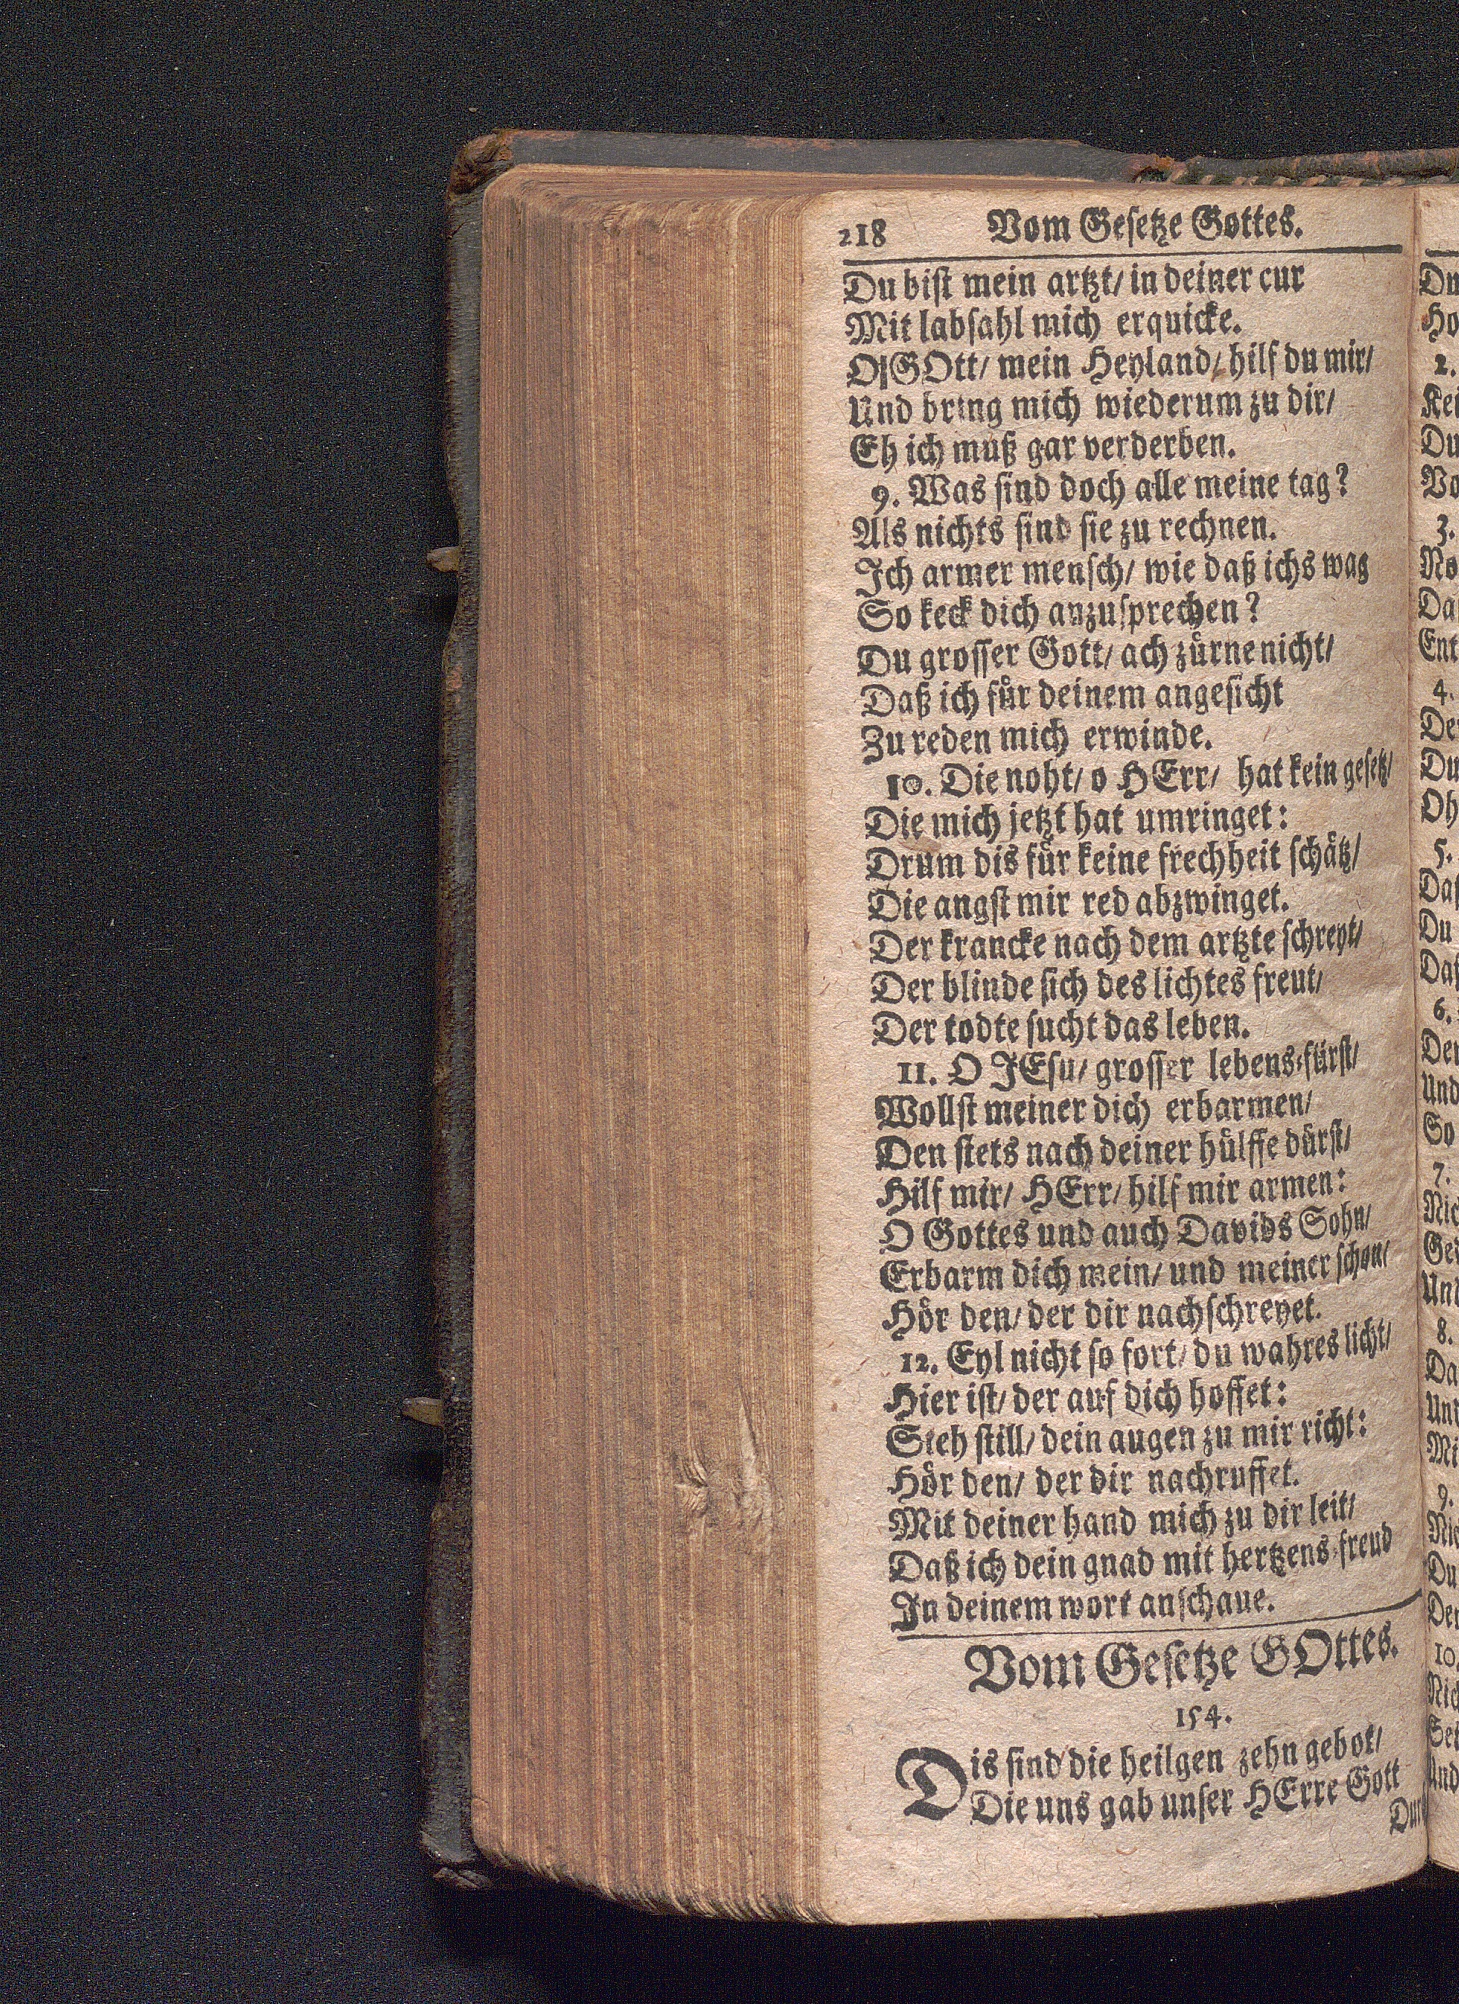 218 Vom Gesetze Gottes.
Du bist mein artzt/ in deiner cur
Mit labsahl mich erquicke.
O GOtt/ mein Heyland/ hilf du mir/
Und bring mich wiederum zu dir/
Eh ich muß gar verderben.
9. Was sind doch alle meine tag?
Als nichts sind sie zu rechnen.
Ich armer mensch/ wie daß ichs wag
So keck dich anzusprechen?
Du grosser Gott/ ach zürne nicht/
Daß ich für deinem angesicht
Zu reden mich erwinde.
10. Die noht/ o HErr/ hat kein gesetz/
Die mich jetzt hat umringet:
Drum dis für keine frechheit schätz/
Die angst mir red abzwinget.
Der krancke nach dem artzte schreyt/
Der blinde sich des lichtes freut/
Der todte sucht das leben.
11. O JEsu/ grosser lebens-fürst/
Wollst meiner dich erbarmen/
Den stets nach deiner hülffe dürst/
Hilf mir/ HErr/ hilf mir armen:
O Gottes und auch Davids Sohn/
Erbarm dich mein/ und meiner schon/
Hör den/ der dir nachschreyet.
12. Eyl nicht so fort/ du wahres licht/
Hier ist/ der auf dich hoffet:
Steh still/ dein augen zu mir richt:
Hör den/ der dir nachruffet.
Mit deiner hand mich zu dir leit/
Daß ich dein gnad mit hertzens-freud
In deinem wort anschaue.
Vom Gesetze GOttes.
154.
Dis sind die heilgen zehn gebot/
Die uns gab unser HErre Gott